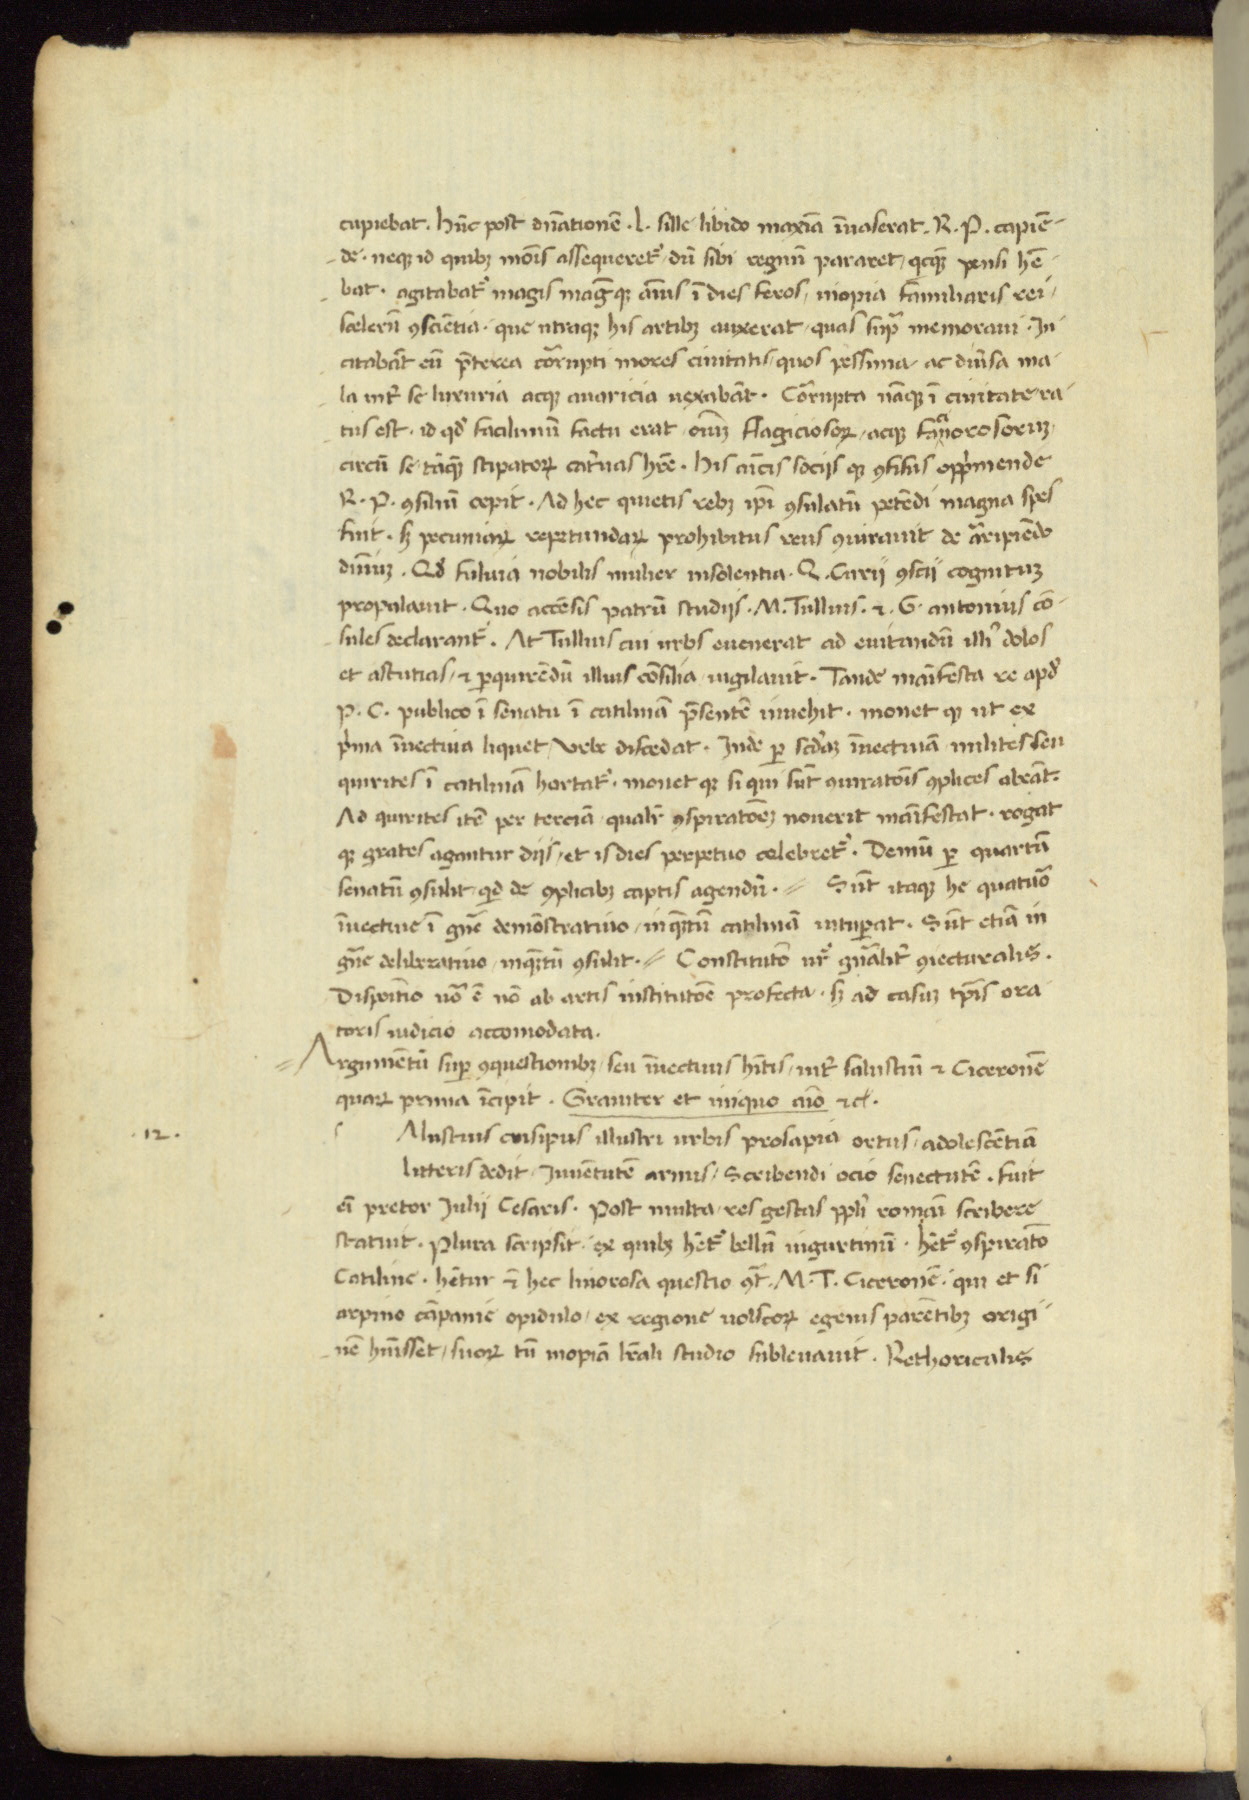 cupiebat. hūc post dn̄ationē. l. sille libido maxīa īuaserat. R. P. capiē-
de. neqꝫ id quibꝫ mōis assequeretᷣ, dū sibi regnū pararet, qcqꝫ pensi hē-
bat. agitabatᷣ magis magͣqꝫ aīus ī dies feros, inopia familiaris rei,
scelerū ꝯsciētia. que utraqꝫ his artibꝫ auxerat, quas supͣ memoraui. In
citabāt eū p̄terea corͣupti mores ciuitatis, quos pessima, ac diu̓sa ma-
la int̓ se luxuria atqꝫ auaricia uexabāt. Corͣupta nāqꝫ ī ciuitate, ra-
tus est, id qd̓ facilimū factu erat, oīuꝫ flagiciosoꝝ, atqꝫ facinorosoruꝫ,
circū se, tāqꝫ stipatoꝝ cat̓uas hr̄e. His aūcis socijs qꝫ ꝯfisus opp̓mende
R. P. ꝯsiliū cepit. Ad hec quietis rebꝫ ip̄i ꝯsulatū petēdi magna spes
fuit. sꝫ pecuniaꝝ repetundaꝝ prohibitus reus ꝯiurauit de arͣipiēdo
diuīuꝫ. Qd̓ fuluia nobilis mulier insolentia. Q. Curij ꝯscij cognituꝫ
propalauit. Quo accēsis patrū studijs. M. Tullius. &. G. antonius cō-
sules declarantᷣ. At Tullius cui urbs euenerat ad euitandū illi̓ dolos
et astutias, & ꝑquirēdū illius cōsilia, uigilauit. Tandē maīfesta re apd̓
P. C. publico ī senatu ī catilinā p̄sentē inuehit. monet qꝫ ut ex
p̓ma īuectiua liquet, Vrbe discedat. Inde ꝑ scd̓aꝫ īuectiuā milites seu
quirites ī catilinā hortatᷣ. monet qꝫ si qui sūt ꝯiuratōis ꝯplices abeāt.
Ad quirites itē per terciā, qualr̓ ꝯspiratōeꝫ nouerit maīfestat. rogat
qꝫ grates agantur dijs, et is dies perpetuo celebretᷣ. Demū ꝑ quartā
senatū ꝯsulit, qd de ꝯplicibꝫ captis agendū. // Sūt itaqꝫ he quatuōr
īuectiue ī gn̄e demōstratiuo, inqꝫtū catilinā uituꝑat. Sūt etiā in
gn̄e deliberatiuo, inqꝫtū ꝯsulit. // Constitutō ur̓ gn̄alit̓ ꝯiecturalis.
Dispōitio uō ē nō ab artis institutōe profecta. sꝫ ad casuꝫ tp̄is ora
toris iudicio accomodata.
// Argumētū suꝑ ꝯquestionibꝫ, seu īuectiuis hītis, int̓ salustiū & Ciceronē
quaꝝ prima īcipit. Grauiter et iniquo aīo &c.
.12. s Alustius crisipus illustri urbis prosapia ortus, adolescētiā
litteris dedit, Iuuētutē armis, Scribendi ocio senectutē. fuit
eī pretor Julij Cesaris. Post multa, res gestas ppl̓i romani scribere
statuit. Plura scripsit, ex quibꝫ hētᷣ bellū iugurtinū. hētᷣ ꝯspiratō
Catiline. hētur & hec liuorosa questio ꝯt̓. M. T. Ciceronē. qui et si
arpino cāpanie opidulo, ex regione uolscoꝝ egenis parētibꝫ origi-
nē hūisset, suoꝝ tn̄ inopiā lr̄ali studio subleuauit. Rethoricalis